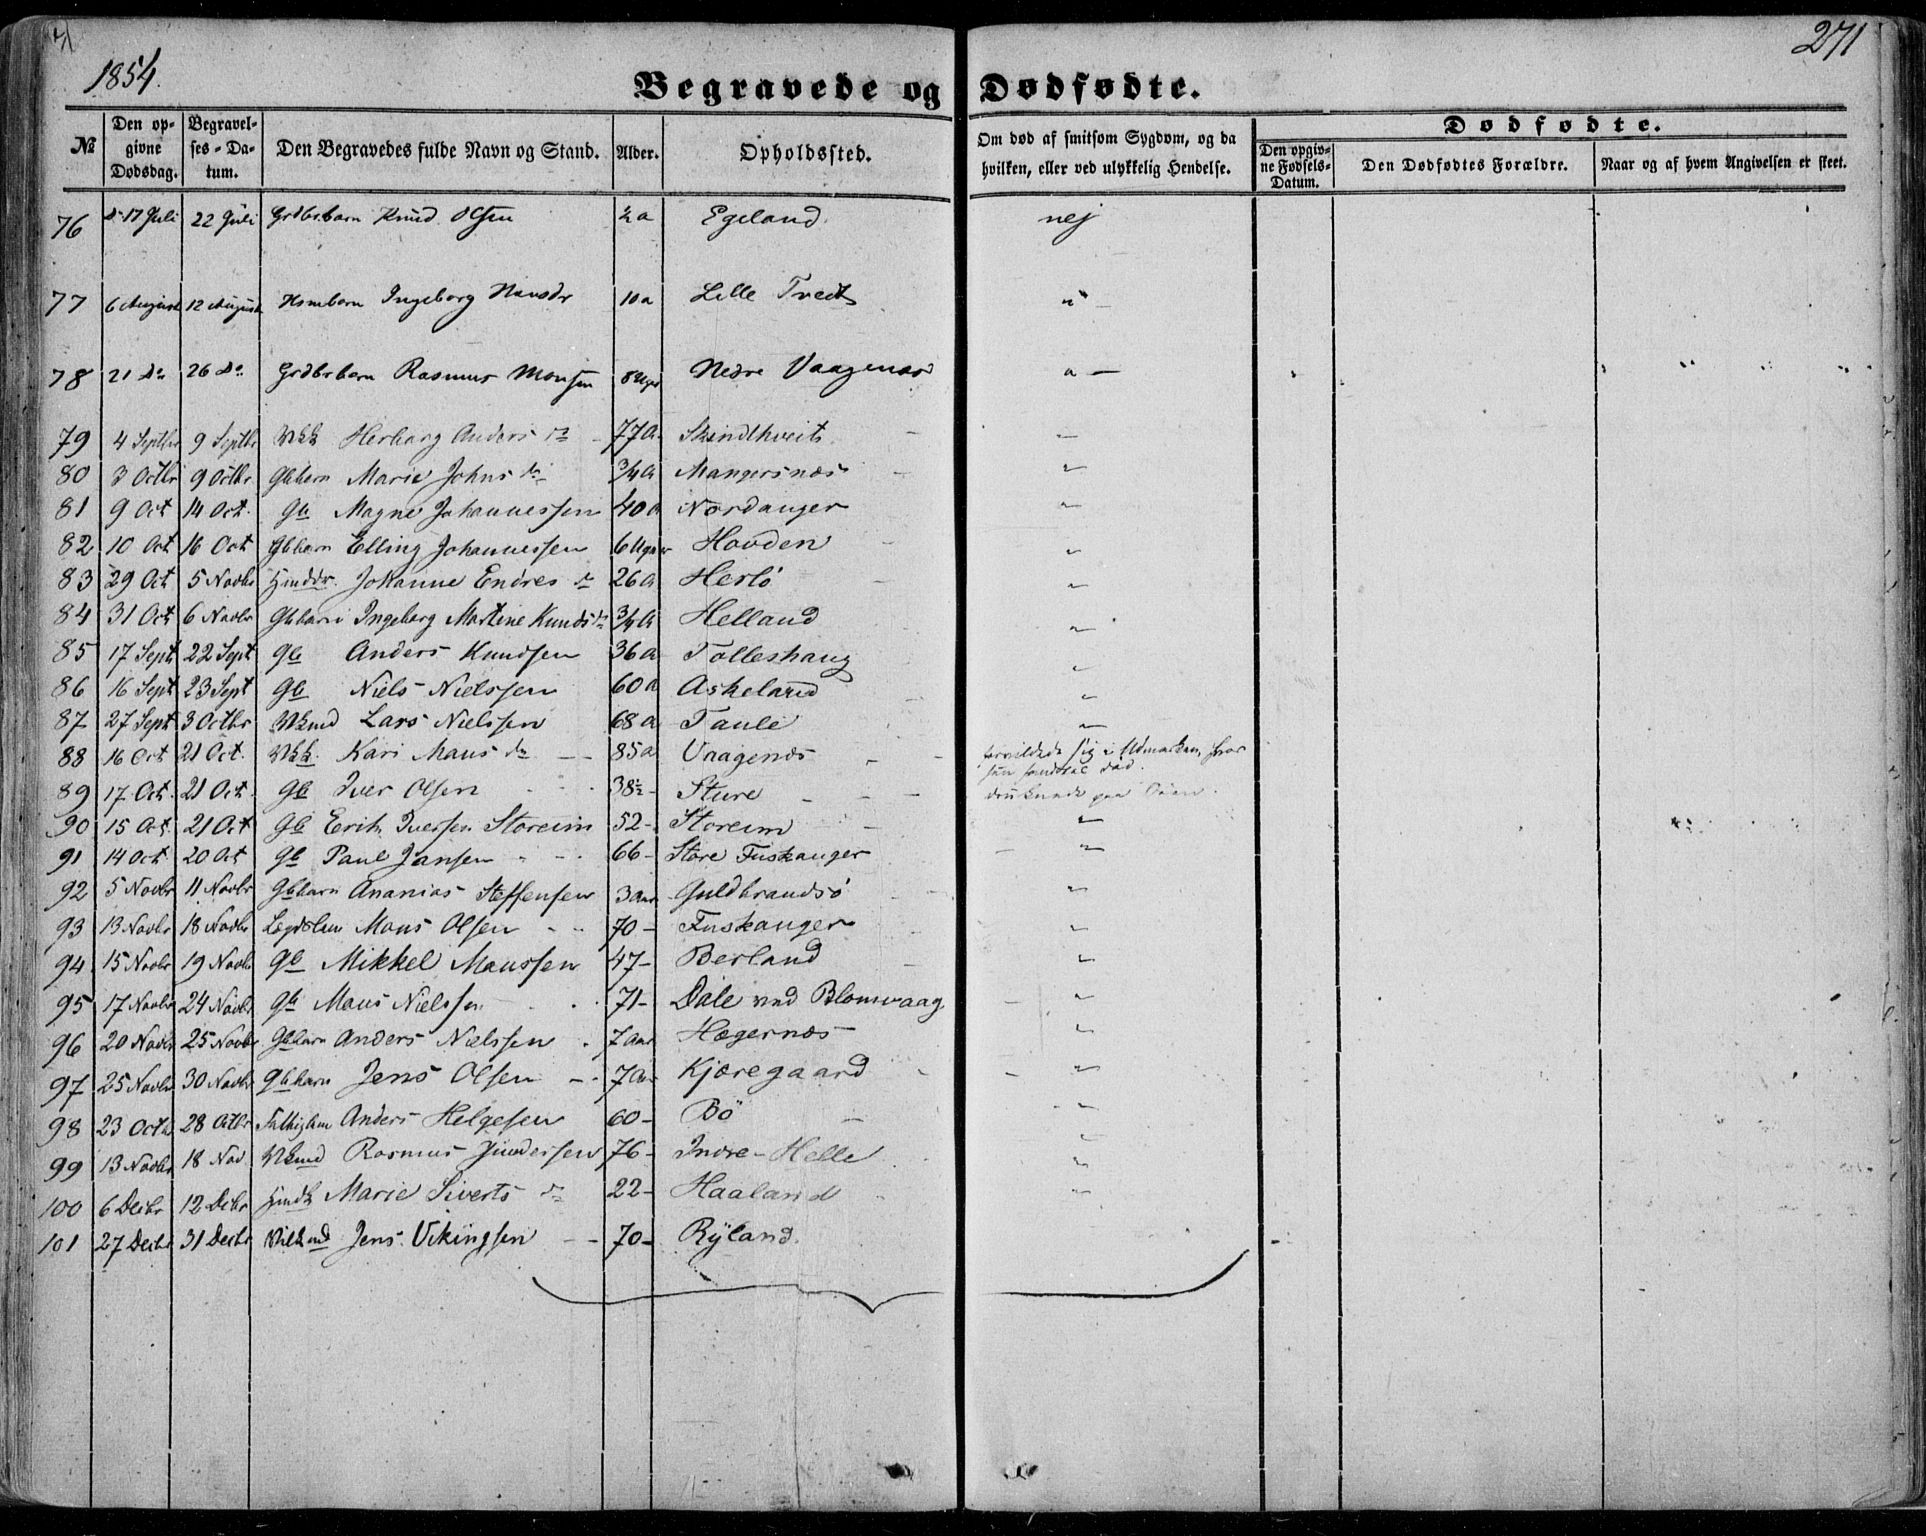 1854.
271
Begravede og Dødfødte.
№ Den opgivne Dødsdag. Begravelses-Datum. Den Begravedes fulde Navn og Stand. Alder. Opholdssted. Om død af smitsom Sygdom, og da hvilken, eller ved ulykkelig Hendelse. Dødfødte. Den opgivne Fødsels-Datum. Den Dødfødtes Forældre. Naar og af hvem Angivelsen er skeet.
76 17 Juli 22 Juli Grdbrbarn Knud Olsen ½ a Egeland nej
77 6 August 12 August Hsmbarn Ingeborg Hansdr 10 a Lille Tveit " —
78 21 Do 26 Do Grdbrbarn Rasmus Monsen 8 Uger Nedre Vaagenæs " —
79 4 Septbr 9 Septbr Herborg Anders dr 77 a Skindthveit "
80 3 Octbr 9 Octbr. Gbbarn Marie Johns dr ¾ a Mangersnæs "
81 9 Oct 14 Oct. Gb Magne Johannessen 40 a Nordanger "
82 10 Oct 16 Oct Gbbarn Elling Johannessen 6 Uger Hovden "
83 29 Oct 5 Novbr Johanne Endres dr 26 a Herlö "
84 31 Oct 6 Novbr Gbbarn Ingeborg Martine Knuds dr ¾ a Helland "
85 17 Sept 22 Sept Gb Anders Knudsen 36 a Tolleshaug "
86 16 Sept 23 Sept Gb Niels Nielssen 60 a Askeland "
87 27 Sept 3 Octbr Lars Nielssen 68 a Taule "
88 16 Oct 21 Oct. Kari Mans dr — — 85 a Vaagenæs forvildede sig i Udmarken, hvor hun fandtes død.
89 17 Oct. 21 Oct. Gb Iver Olsen 38½ - Sture druknede paa Søen.
90 15 Oct. 21 Oct Gb Eerik Iversen Storeim 52 - Storeim "
91 14 Oct 20 Oct Gb Paul Jansen 66 - Store Fuskanger "
92 5 Novbr 11 Novbr Gbbarn Ananias Steffensen 3 Aar Guldbrandsö "
93 13 Novbr 18 Novbr Lægdslem Mons Olsen 70 - Fuskanger "
94 15 Novbr 19 Novbr Gb Mikkel Manssen 47 - Berland "
95 17 Novbr 24 Novbr Gb Mans Nielssen 71 - Dale ved Blomvaag "
96 20 Novbr 25 Novbr Gbbarn Anders Nielssen 7 Aar Hægernæs "
97 25 Novbr 30 Novbr Gbbarn Jens Olsen 7 Aar Kjæregaard "
98 23 Octbr 28 Octbr Fattiglem Anders Helgesen 60 - Bö "
99 13 Novbr 18 Nov Rasmus 76 - Indre-Helle "
100 6 Decbr 12 Decbr Marie Siverts dr 22 - Haaland "
101 27 Decbr 31 Decbr Jens Vikingsen 70 - Ryland.